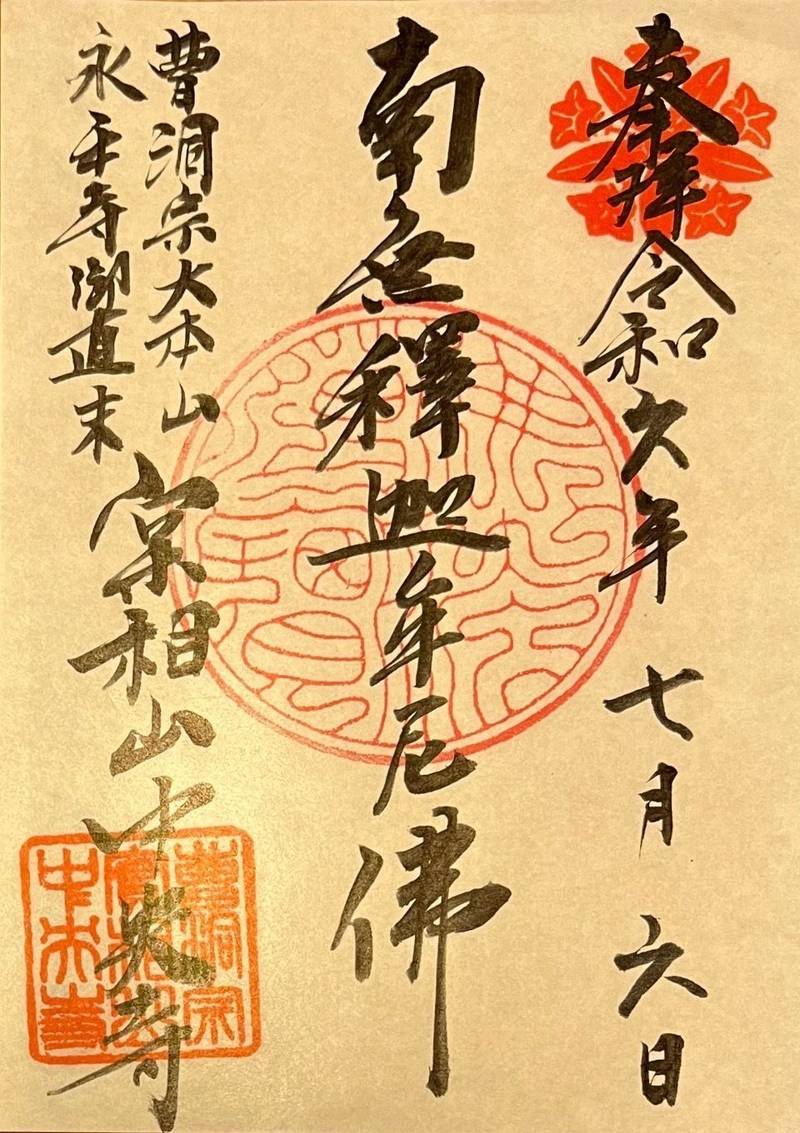 奉拝 令和六年 七月 六日
南無釋迦牟尼佛
曹洞宗大本山
永平寺御直末
相山中央寺
曹洞宗
中央寺